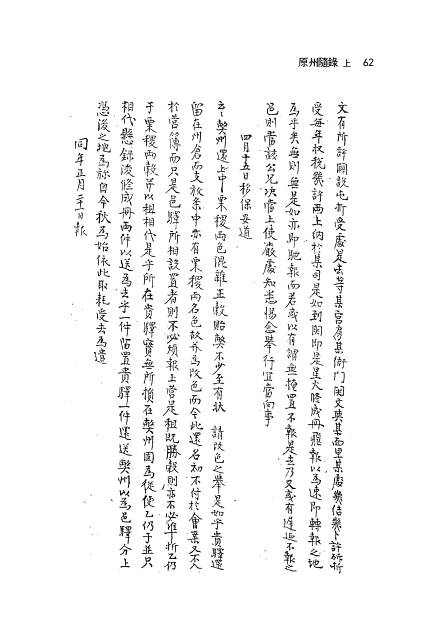 原州隨錄 上 62
文有所許開錄也折受處是去等某宮房某衙門関文與某面里某處幾結幾卜許斫所
受每年收税幾許兩上納於某司是如到関即是星火修成冊飛報以爲速即轉報之地
爲乎矣無則無是如亦即馳報而若或以有謂無掩置不報是去乃又或有遲延不報之
邑則當該公兄決當上使嚴處知悉惕念擧行宜當向事
四月十五日杉保安道
云云弊州還上中栗稷兩色混雜正穀貽弊不少至有狀 請改色之擧是如乎貴驛還
留在州倉而支放条中亦有栗稷兩名色故并爲改色而今此還名初不付於會案又不入
於營簿而只是邑驛所相設置者則不必煩報上營是租既勝穀則亦不必準折乙仍
于栗稷兩穀并以租相代是乎所在貴驛實無所損在弊州固爲從便乙仍于並只
相代懸錄後修成冊兩件以送爲去乎一件留置貴驛一件還送弊州以爲邑驛分上
憑後之地爲旀自今秋爲始依此取耗受去爲遣
同年正月二十一日報